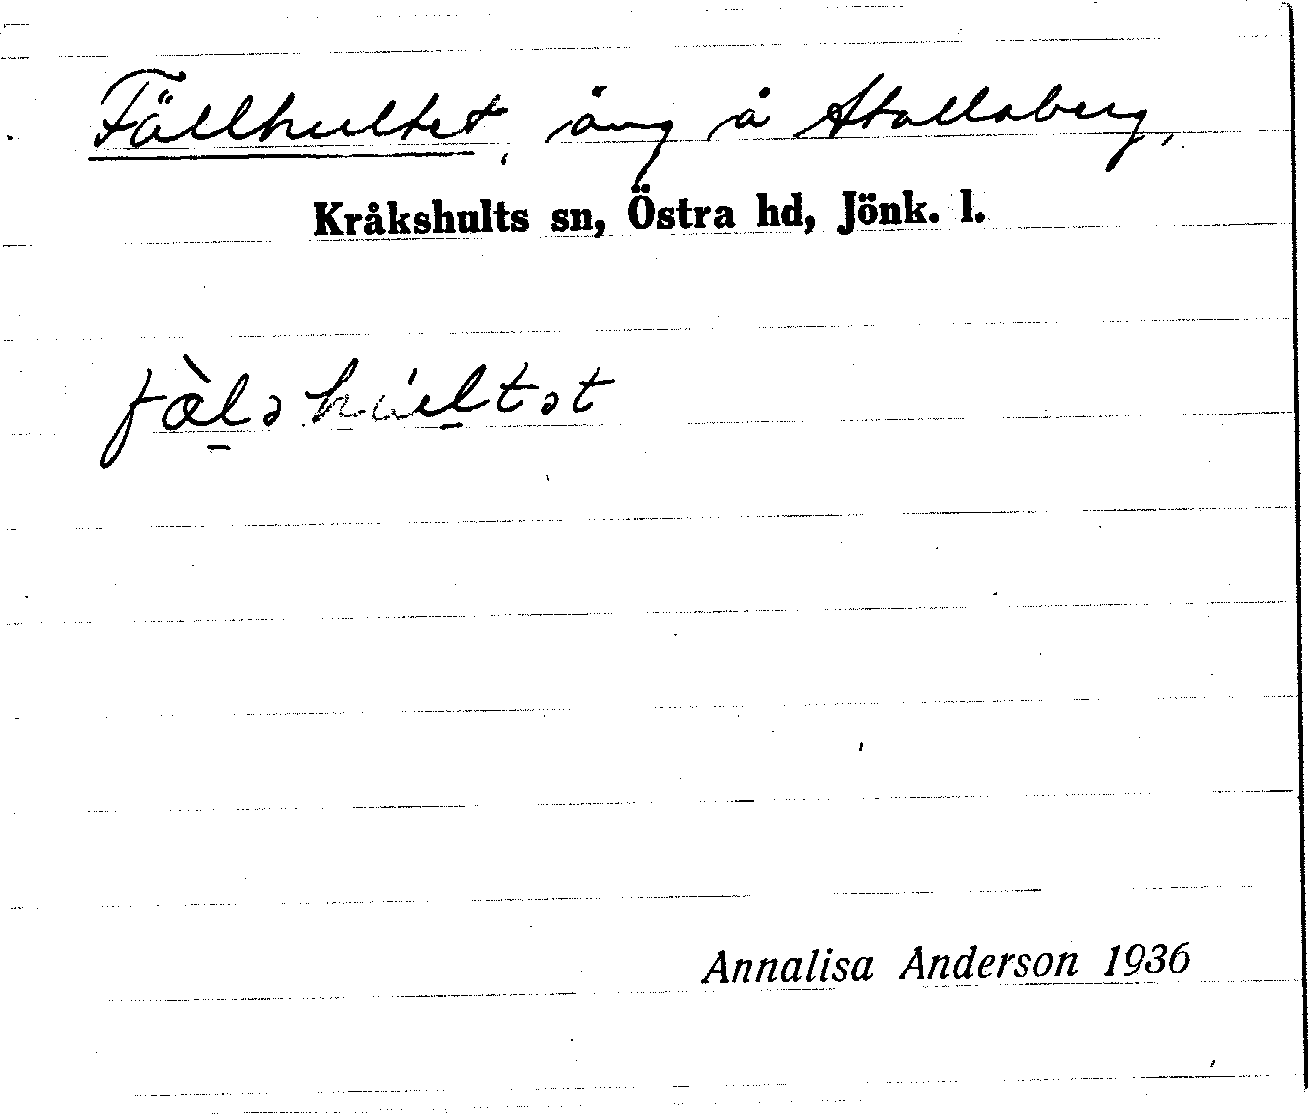 Fällhultet, äng å Stallaberg,
Kråkshults sn, Östra hd, Jönk. l.
fæ̀ləhúltət
Annalisa Anderson 1936